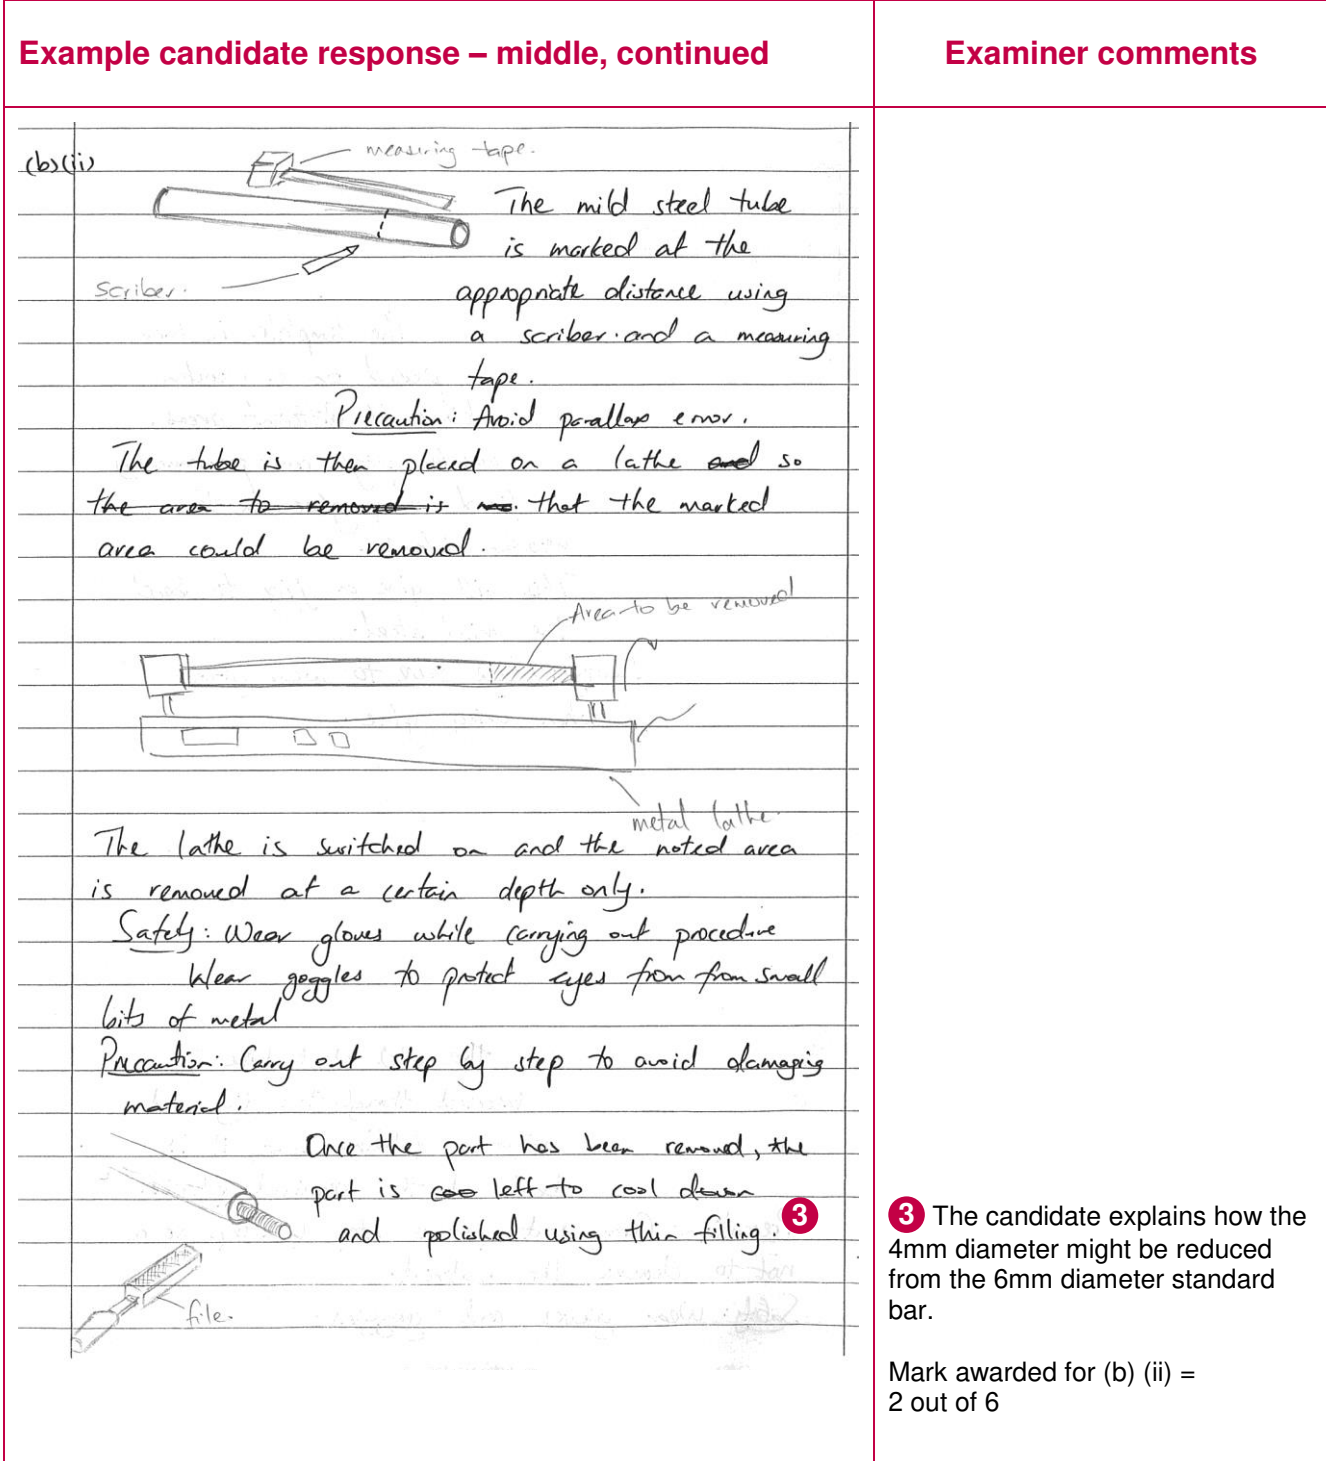 Example candidate response – middle, continued
Examiner comments
(b)(ii)
measuring tape.
The mild steel tube
is marked at the
scriber.
appropriate distance using
a scriber. and a measuring
tape.
Precaution: Avoid parallax error.
The tube is then placed on a lathe and so
the area to removed is that the marked
area could be removed.
Area to be removed
metal lathe
The lathe is switched on and the noted area
is removed at a certain depth only.
Safety: Wear gloves while carrying out procedure
Wear goggles to protect eyes from from small
bits of metal
Precaution: Carry out step by step to avoid damaging
material.
Once the part has been removed, the
part is coo left to cool down
and polished using thin filling. 3
file.
3 The candidate explains how the
4mm diameter might be reduced
from the 6mm diameter standard
bar.
Mark awarded for (b) (ii) =
2 out of 6